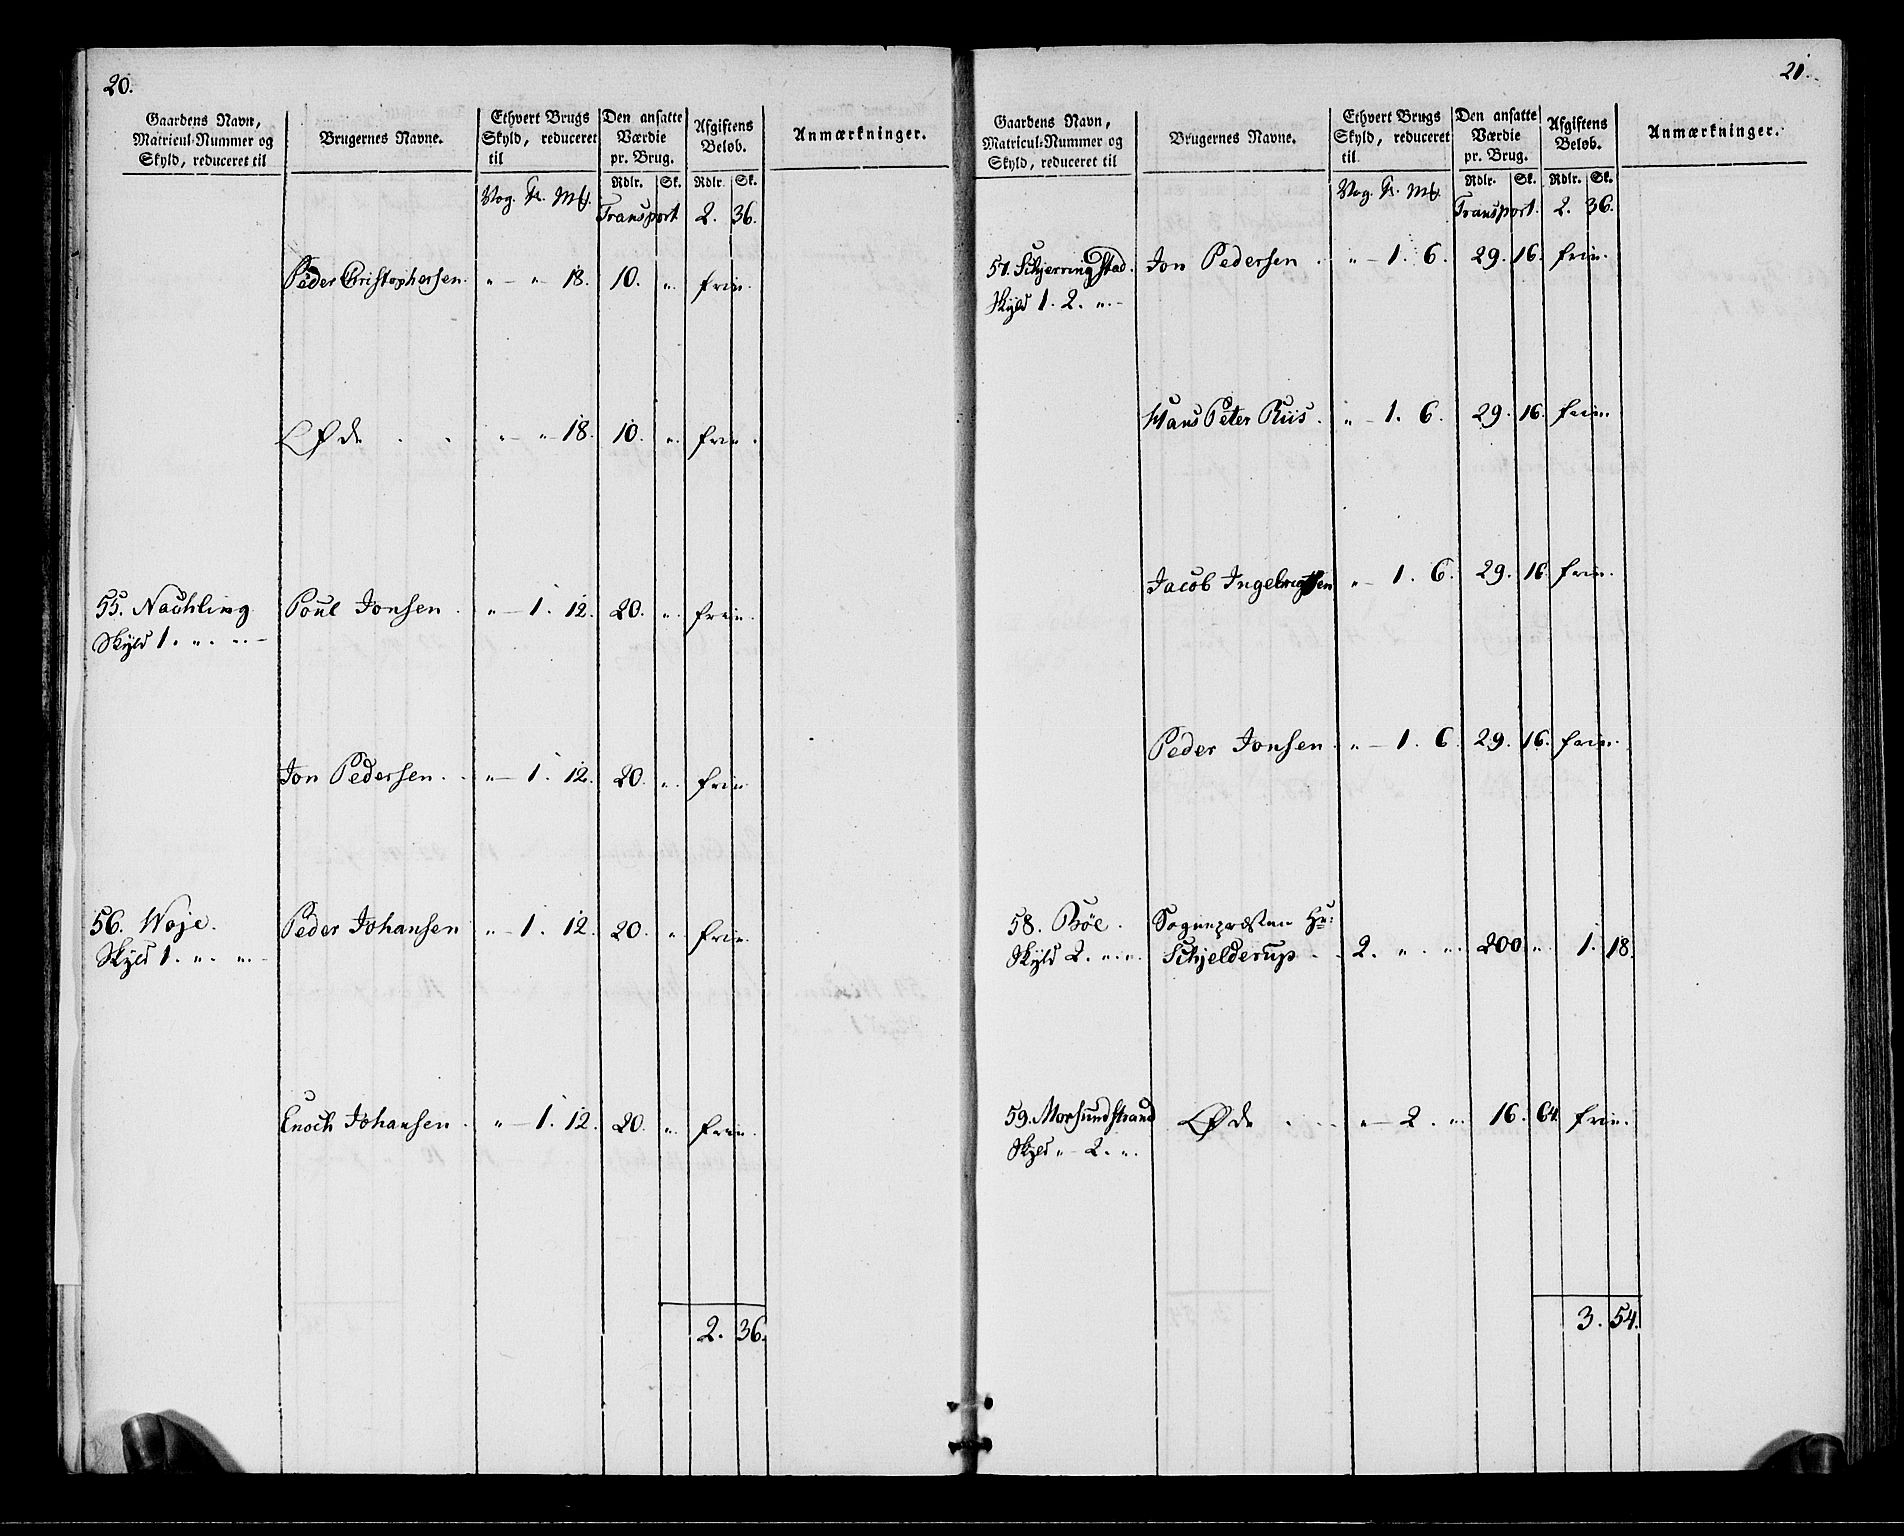 20.
Gaardens Navn, Matricul-Nummer og Skyld, reduceret til
Brugernes Navne.
Ethvert Brugs Skyld, reduceret til
Den ansatte Værdie pr. Brug.
Afgiftens Beløb.
Anmærkninger.
Rdlr. Sk. Rdlr. Sk.
Vog. Mk.
Transport 2. 36.
Peder Christophersen. " — " 18. 10. ". frie.
Øde . . " — " 18. 10. ". frie.
55. Nachling Poul Jonsen . " — 1. 12. 20. ". frie.
Skyld 1. ". ". —
Jon Pedersen . " — 1. 12. 20. ". frie.
56. Woje. Peder Johansen " — 1. 12. 20. ". frie.
Skyld 1. ". ". —
Enoch Johansen . " — 1. 12. 20. ". frie.
2. 36.
21.
Gaardens Navn, Matricul-Nummer og Skyld, reduceret til
Brugernes Navne.
Ethvert Brugs Skyld, reduceret til
Den ansatte Værdie pr. Brug.
Afgiftens Beløb.
Anmærkninger.
Rdlr. Sk. Rdlr. Sk.
Vog. Mk.
Transport. 2. 36.
57. Schjerringstad. Jon Pedersen . " — 1. 6. 29. 16. frie.
Skyld 1. 2. ". —
Hans Peter Riis . " — 1. 6. 29. 16. frie.
Jacob Ingebrigtsen " — 1. 6. 29. 16. frie.
Peder Jonsen . " — 1. 6. 29. 16. frie.
58. Böe . Sognepræsten Hr:
Skyld 2. ". ". Schjelderup . . 2. ". ". 200 ". 1. 18.
59. Morsundstrand Øde . . " — 2. ". 16. 64. frie.
Skyld " — 2. ".
3. 54.